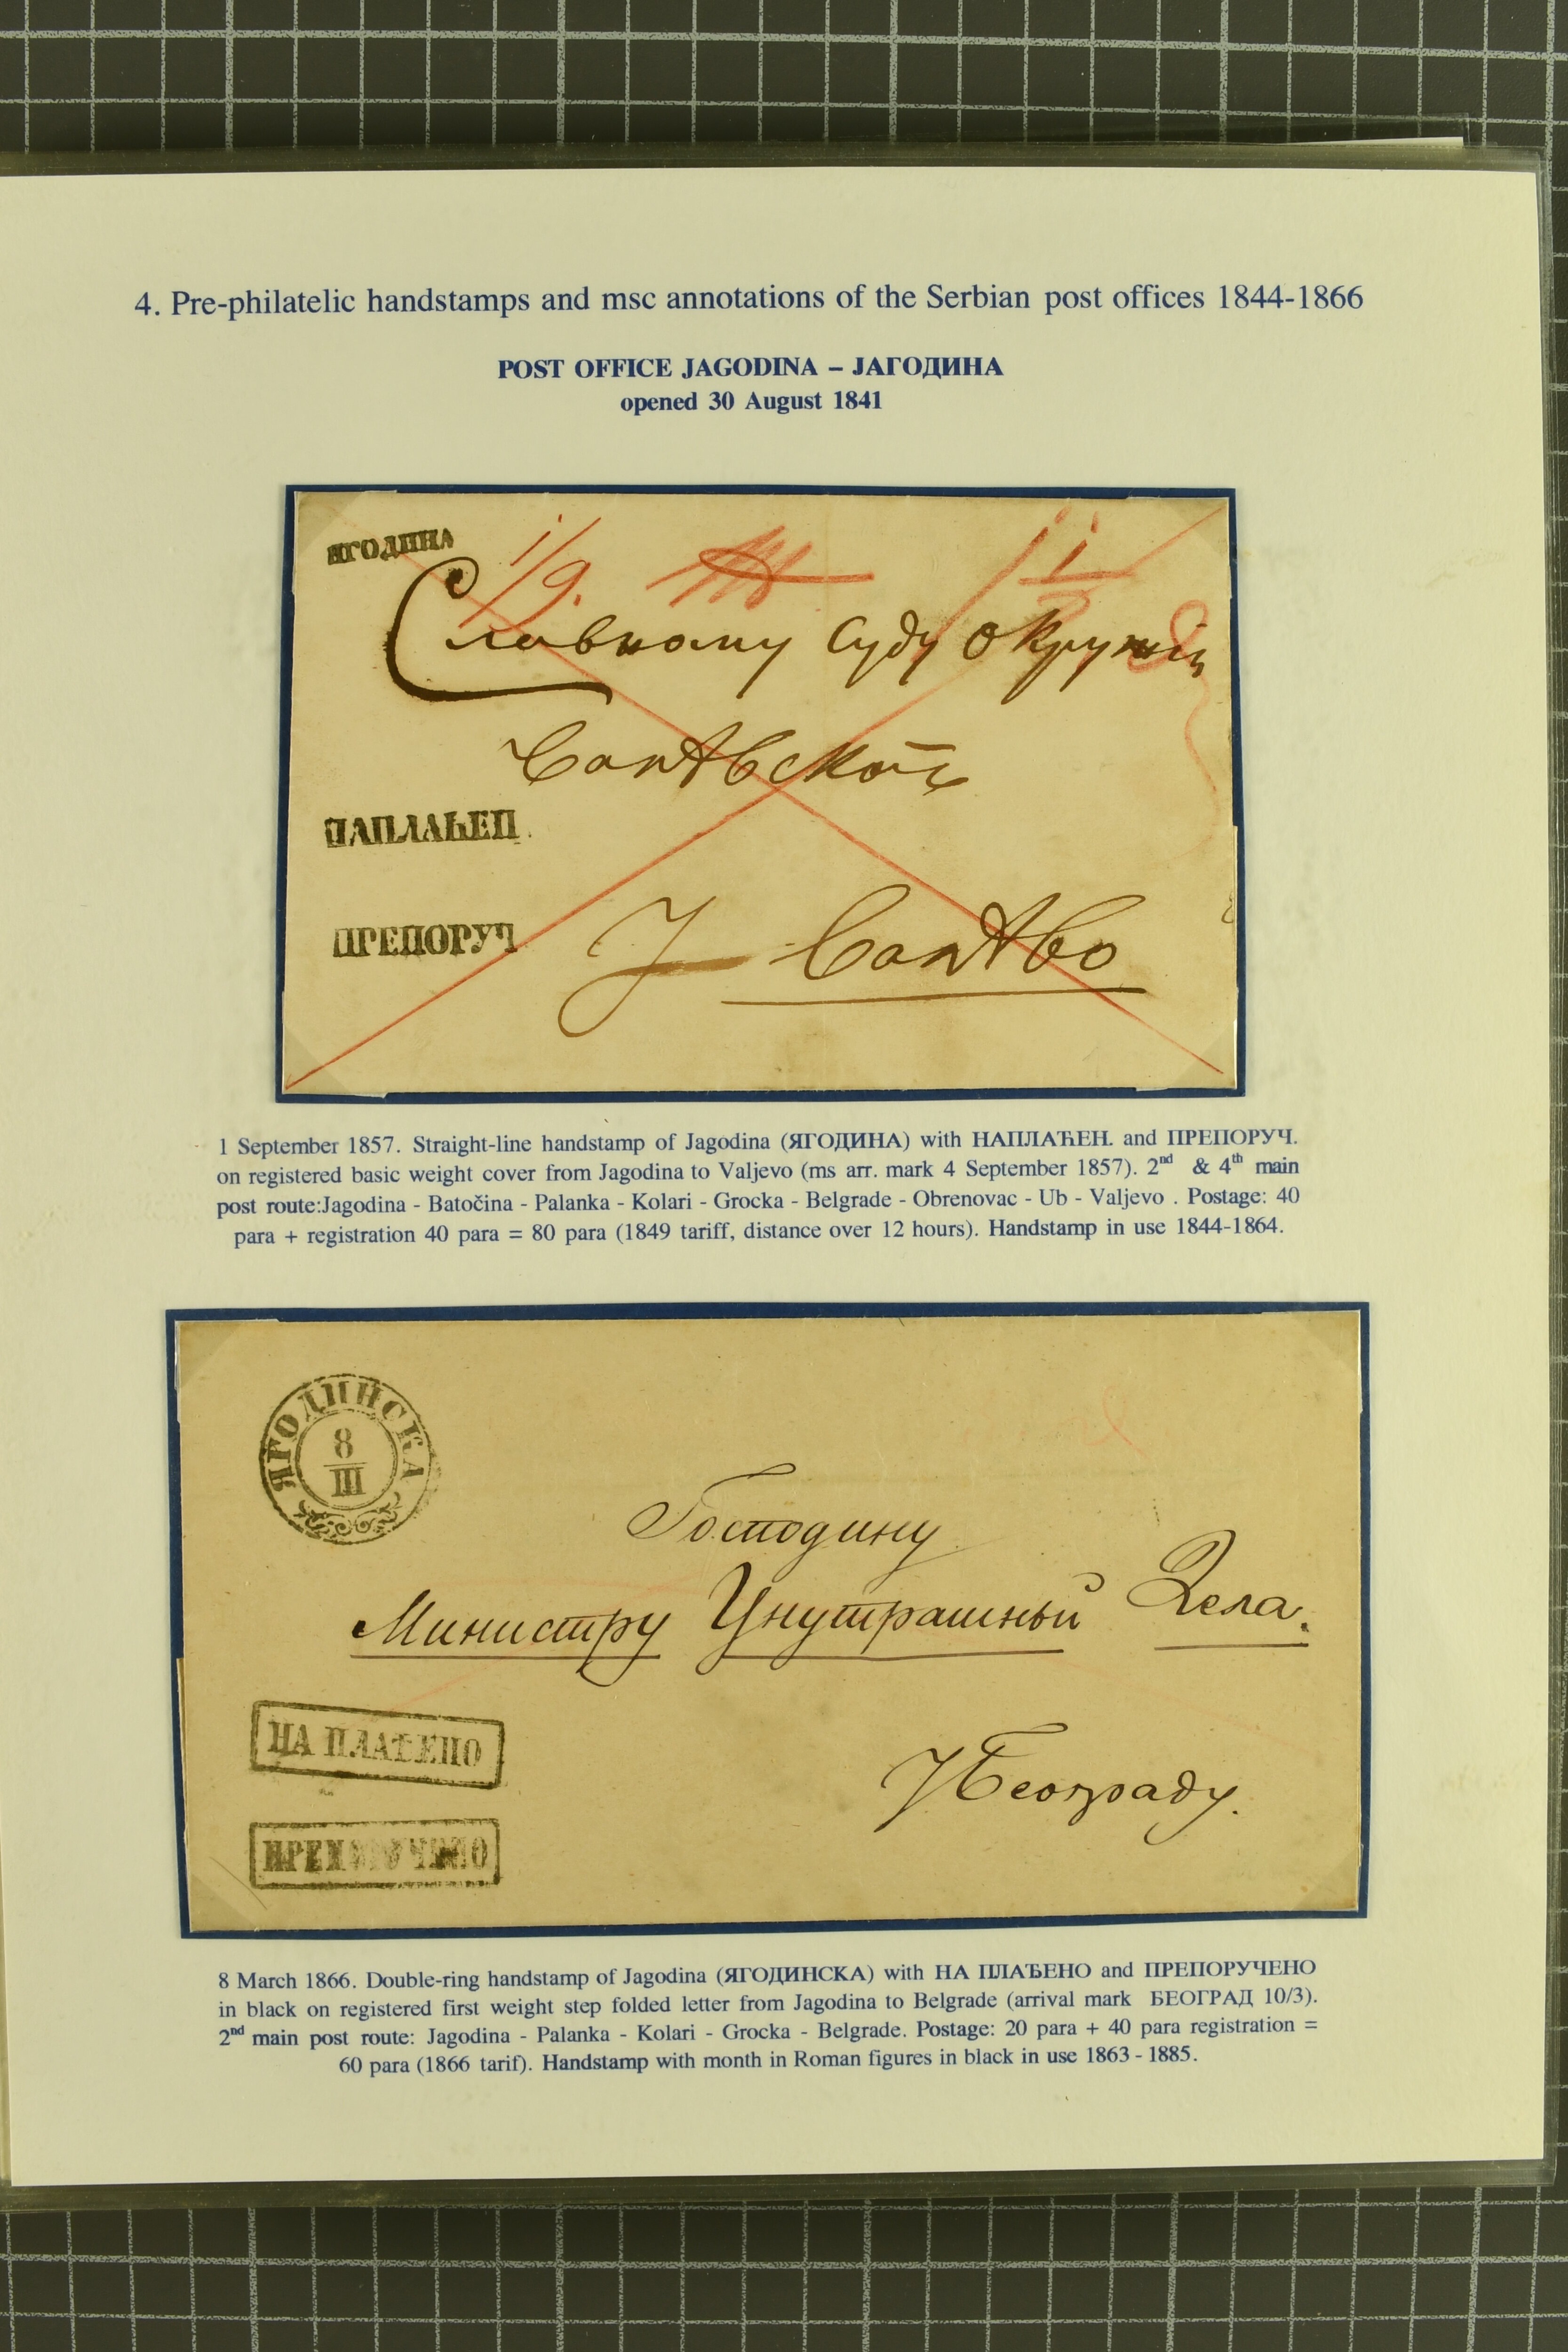 4. Pre-philatelic handstamps and msc annotations of the Serbian post offices 1844-1866
POST OFFICE JAGODINA – ЈАГОДИНА
opened 30 August 1841
ЯГОДИНА
1/9.
Славному Суду Окружія
ПАПЛАЋЕП.
ПРЕПОРУЧ
У
1 September 1857. Straight-line handstamp of Jagodina (ЯГОДИНА) with НАПЛАЋЕН. and ПРЕПОРУЧ.
on registered basic weight cover from Jagodina to Valjevo (ms arr. mark 4 September 1857). 2nd & 4th main
post route:Jagodina - Batočina - Palanka - Kolari - Grocka - Belgrade - Obrenovac - Ub - Valjevo . Postage: 40
para + registration 40 para = 80 para (1849 tariff, distance over 12 hours). Handstamp in use 1844-1864.
ЯГОДИНСКА
8
III
Господину
Министру Унутрашньи Дела.
НА ПЛАЂЕНО
У Београду.
ПРЕПОРУЧЕНО
8 March 1866. Double-ring handstamp of Jagodina (ЯГОДИНСКА) with НА ПЛАЂЕНО and ПРЕПОРУЧЕНО
in black on registered first weight step folded letter from Jagodina to Belgrade (arrival mark БЕОГРАД 10/3).
2nd main post route: Jagodina - Palanka - Kolari - Grocka - Belgrade. Postage: 20 para + 40 para registration =
60 para (1866 tarif). Handstamp with month in Roman figures in black in use 1863 - 1885.